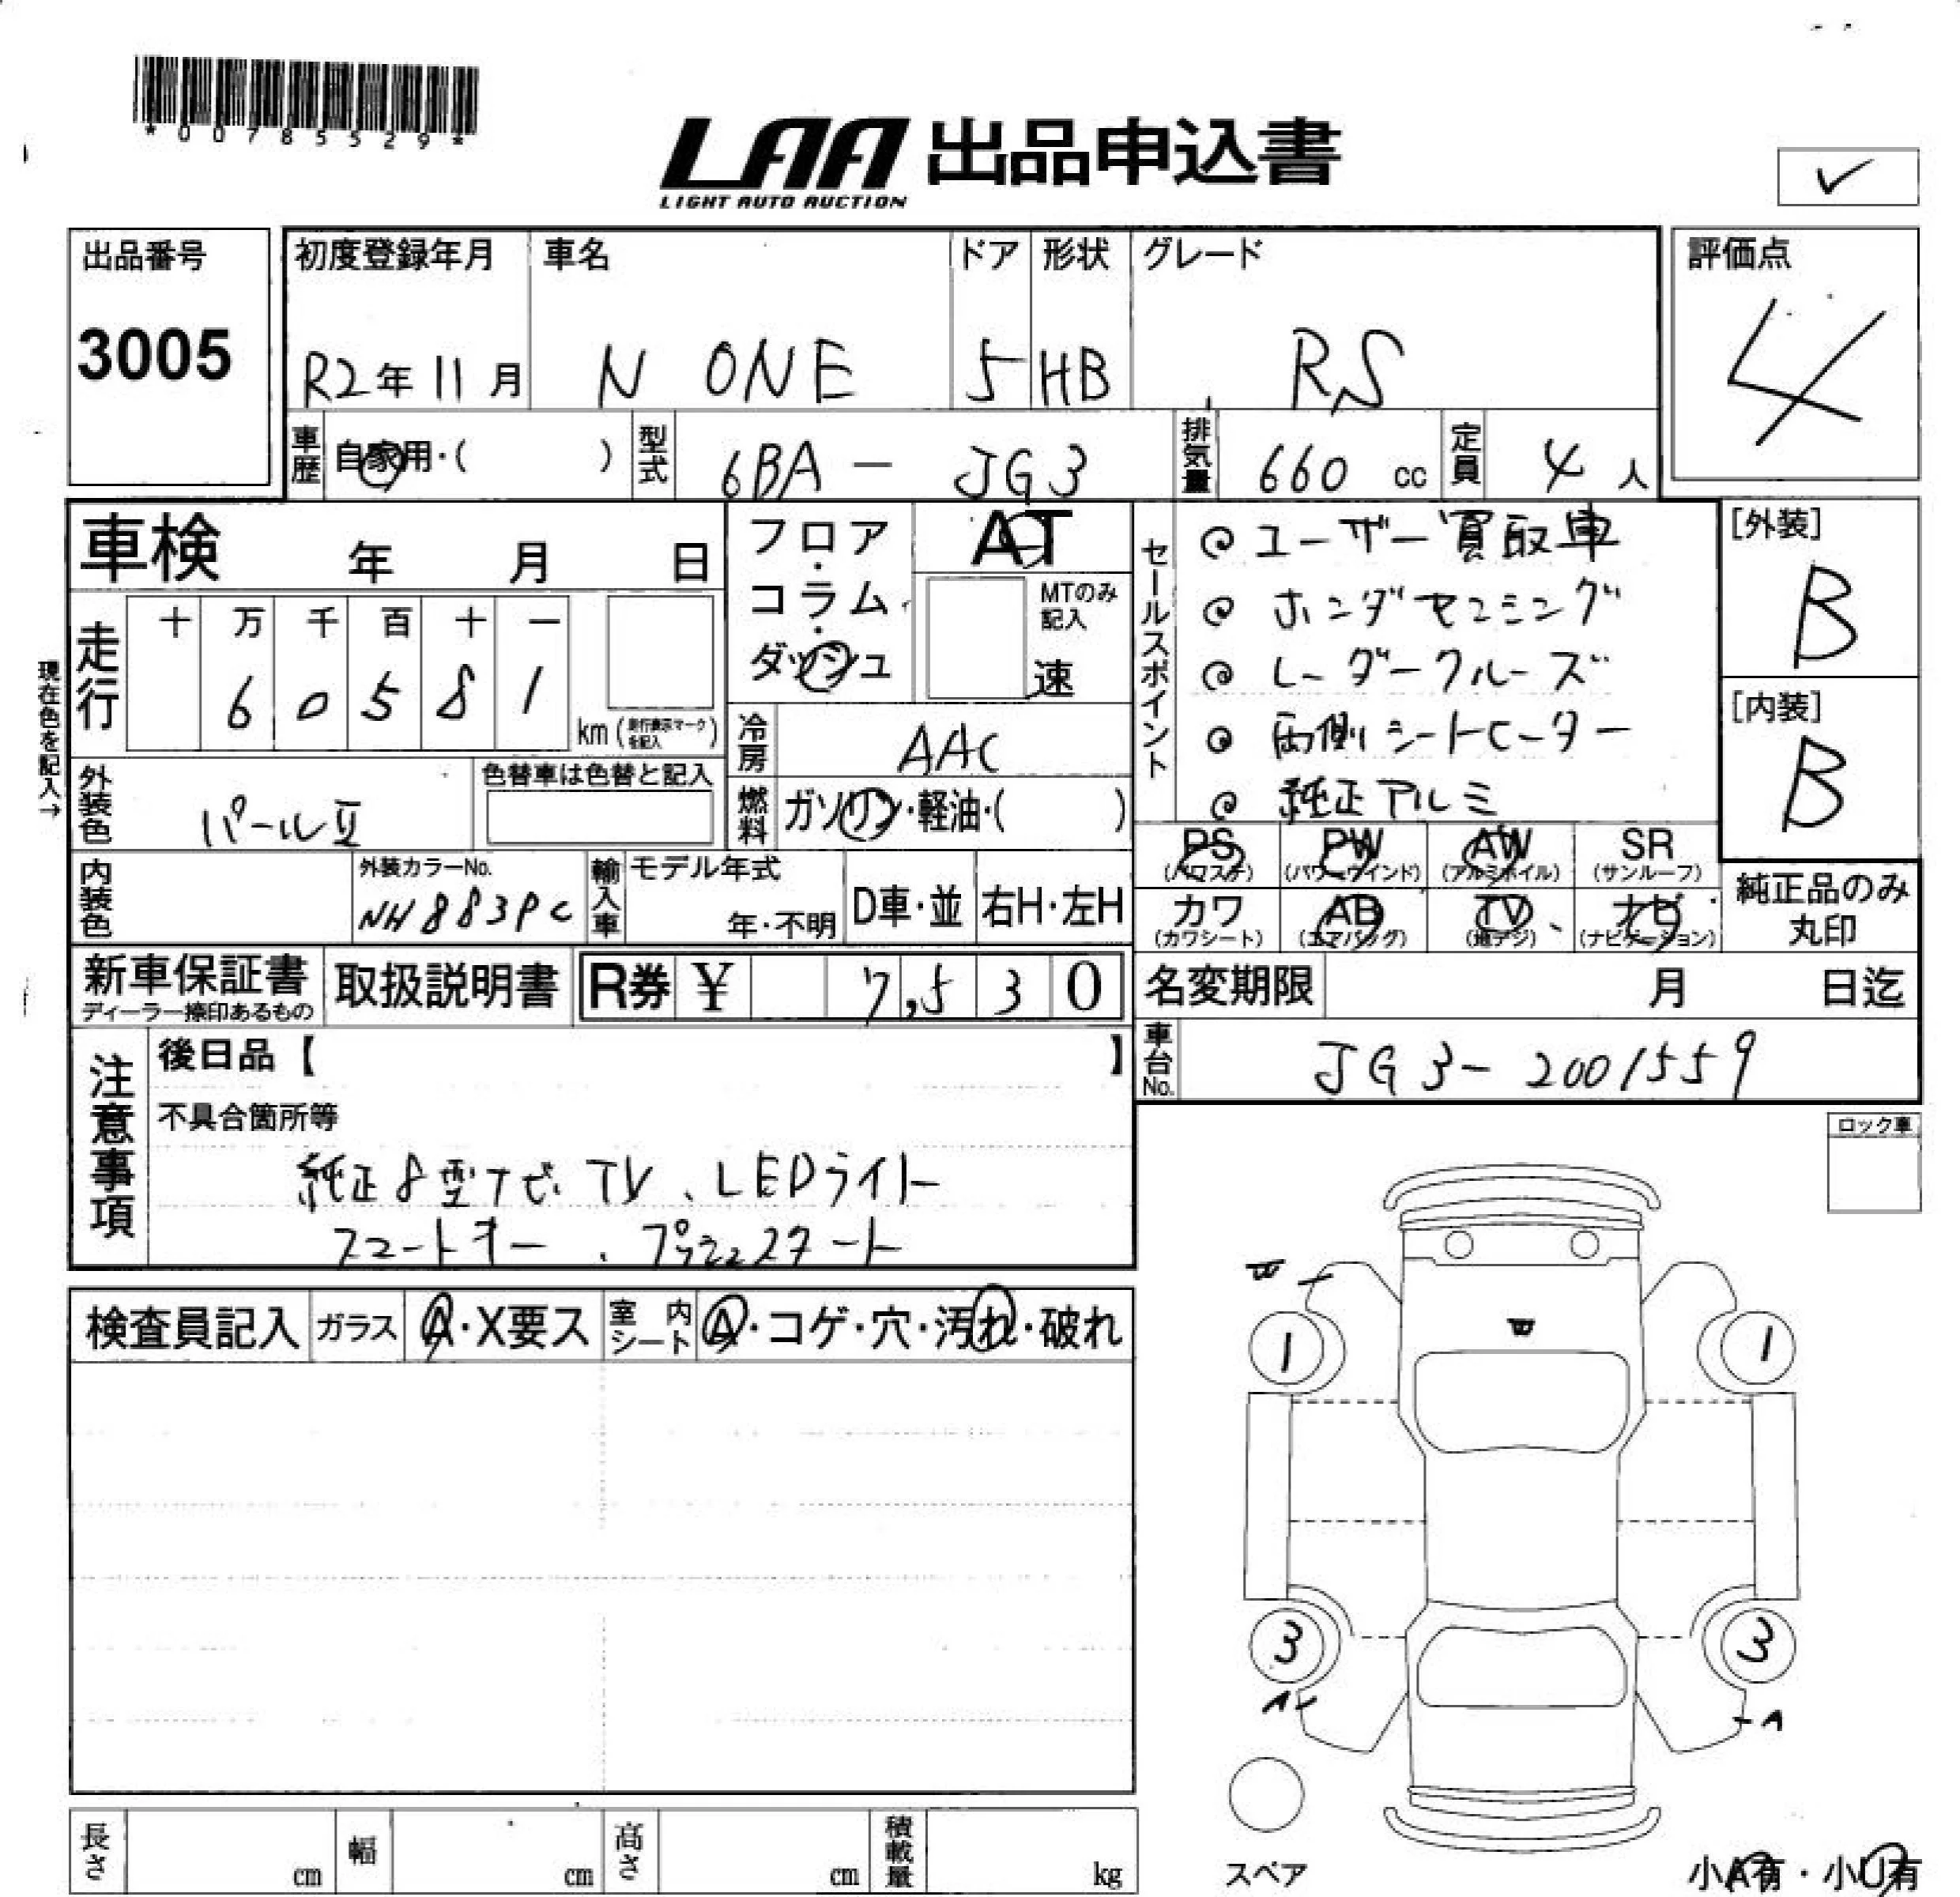 *00785529*
LAA 出品申込書
LIGHT AUTO AUCTION
✓
出品番号
3005
初度登録年月
R2年11月
車名
N ONE
ドア
5
形状
HB
グレード
RS
評価点
4
車歴
自家用・( )
型式
6BA - JG3
排気量
660 cc
定員
4 人
車検 年 月 日
フロア・コラム・ダッシュ
AT
MTのみ記入
速
現在色を記入→
走行
十 万 千 百 十 一
6 0 5 8 1
km (走行表示マークを記入)
冷房
AAC
外装色
パールⅡ
色替車は色替と記入
燃料
ガソリン・軽油・( )
セールスポイント
ユーザー買取車
ホンダセンシング
レーダークルーズ
両側シートヒーター
純正アルミ
[外装]
B
[内装]
B
PS (パワステ)
PW (パワーウインド)
AW (アルミホイル)
SR (サンルーフ)
カワ (カワシート)
AB (エアバッグ)
TV (地デジ)
ナビ (ナビゲーション)
純正品のみ丸印
内装色
外装カラーNo.
NH883PC
輸入車
モデル年式
年・不明
D車・並
右H・左H
新車保証書
ディーラー捺印あるもの
取扱説明書
R券 ¥ 7,530
名変期限 月 日迄
車台No.
JG3-2001559
注意事項
後日品【 】
不具合箇所等
純正8型ナビ、TV、LEDライト
スマートキー、プッシュスタート
ロック車
検査員記入
ガラス
A・X要ス
室内シート
A・コゲ・穴・汚れ・破れ
W
W
1
1
3
3
A
A
スペア
小A有・小U有
長さ cm
幅 cm
高さ cm
積載量 kg